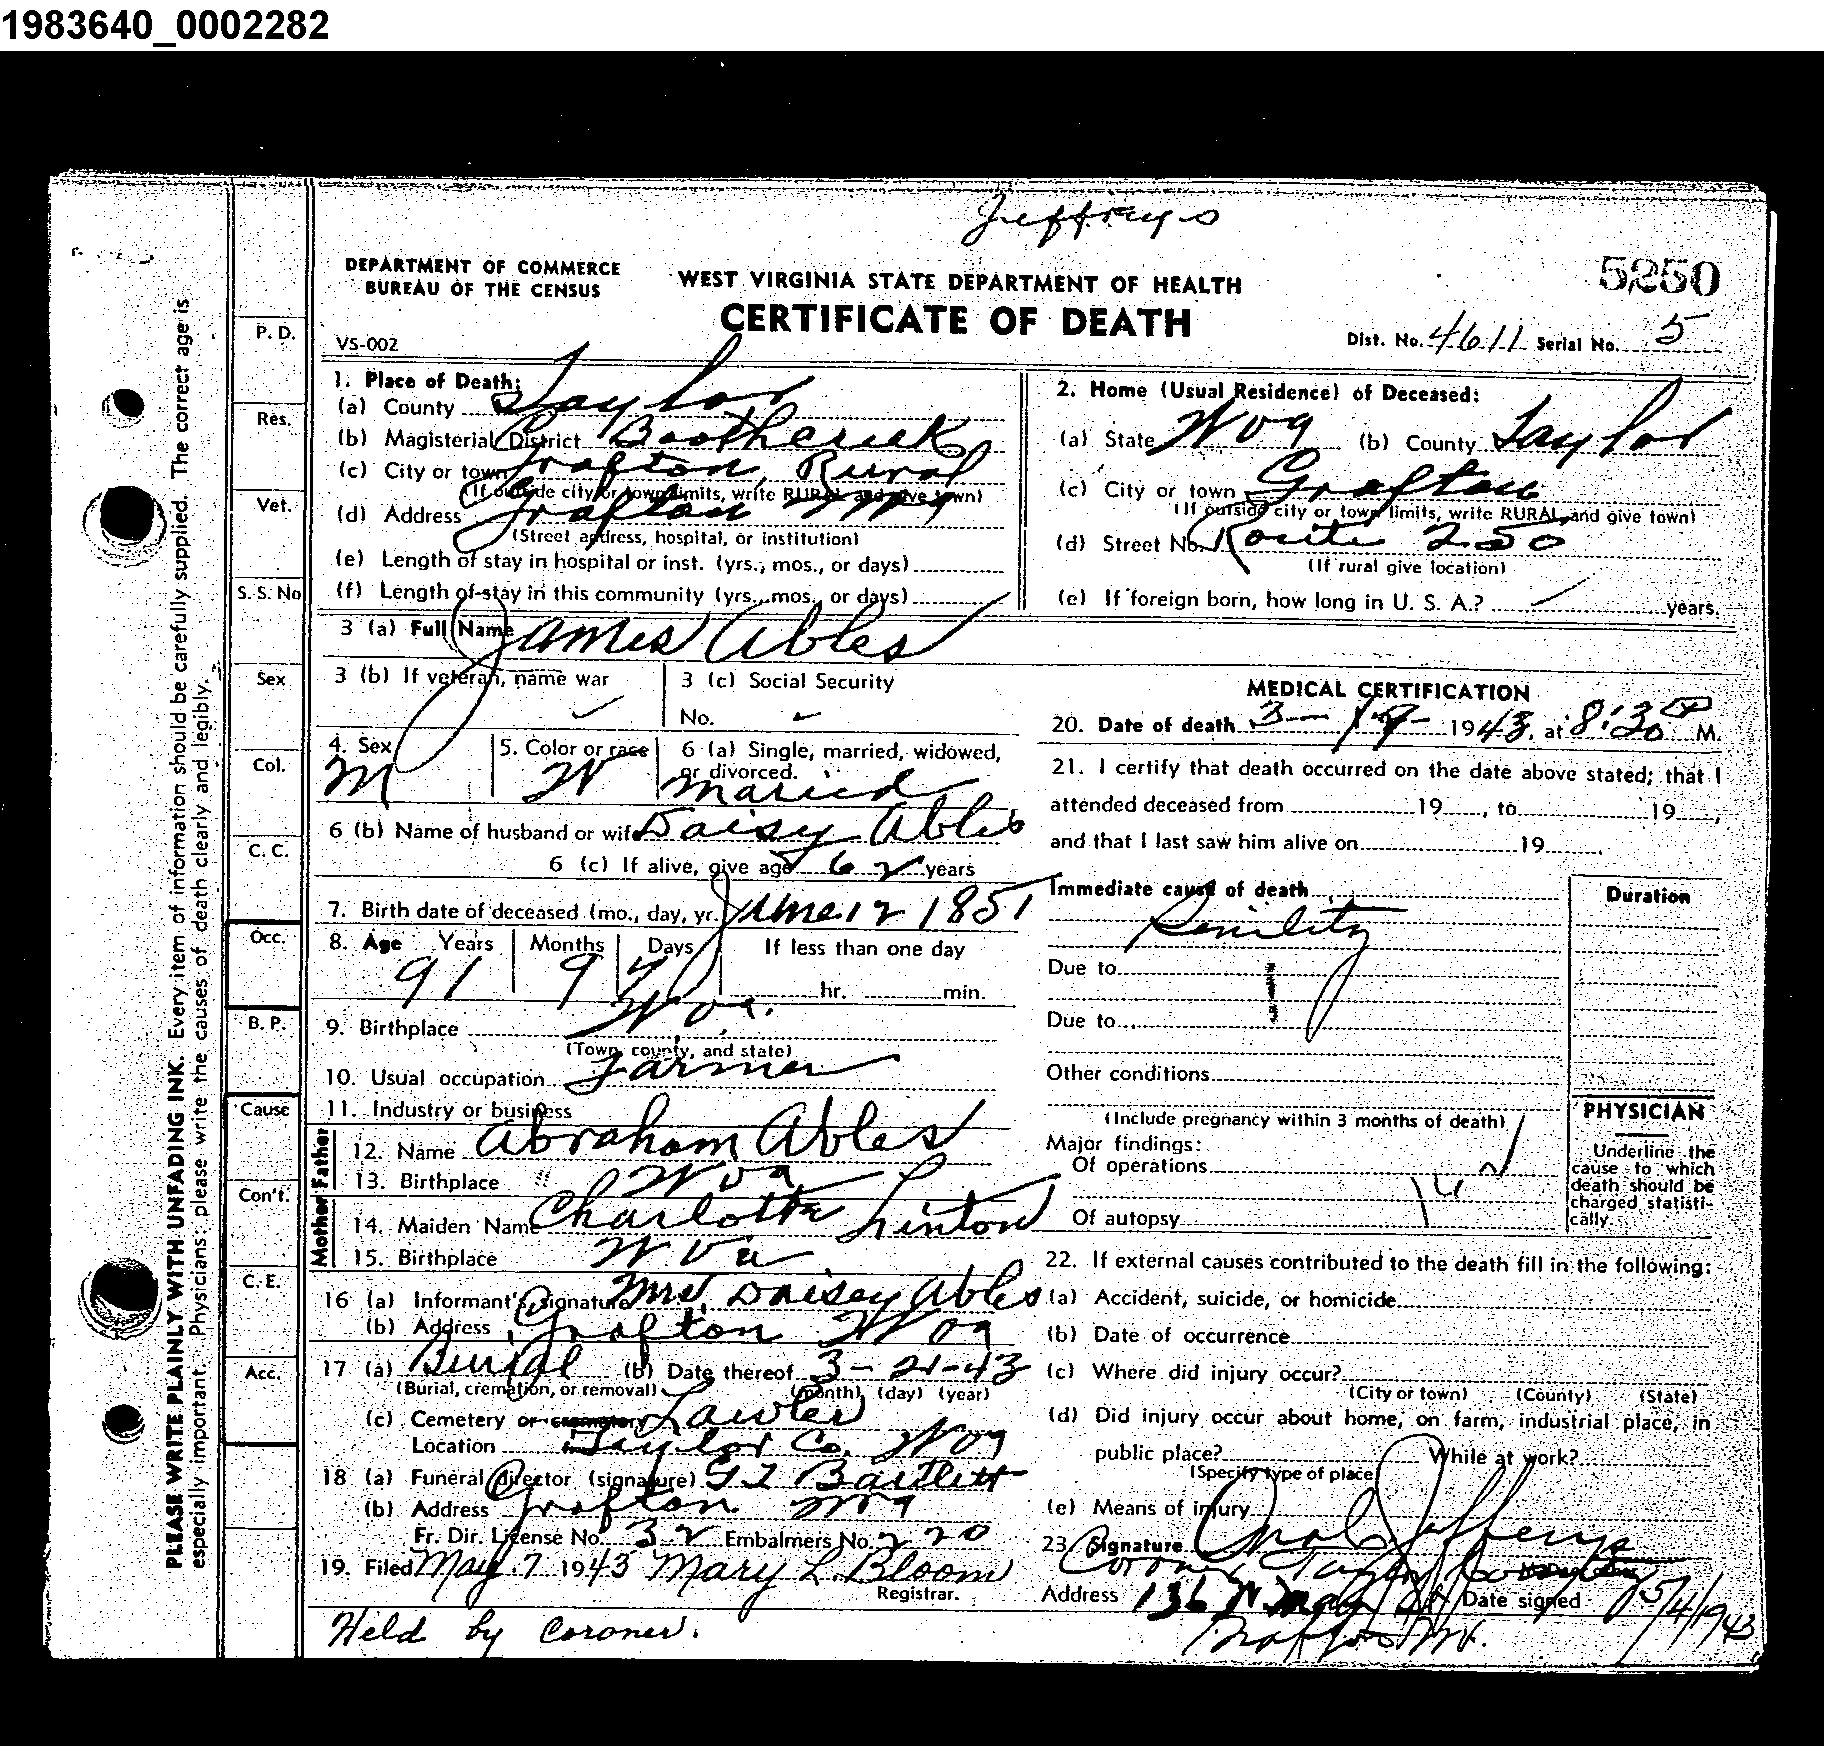 1983640_0002282
Jeffreys
DEPARTMENT OF COMMERCE
BUREAU OF THE CENSUS
WEST VIRGINIA STATE DEPARTMENT OF HEALTH
5250
CERTIFICATE OF DEATH
VS-002
Dist. No. 4611 Serial No. 5
1. Place of Death:
(a) County Taylor
(b) Magisterial District Boothcreek
(c) City or town Grafton, Rural
(If outside city or town limits, write RURAL and give town)
(d) Address Grafton
(Street address, hospital, or institution)
(e) Length of stay in hospital or inst. (yrs., mos., or days)
(f) Length of stay in this community (yrs., mos., or days)
2. Home (Usual Residence) of Deceased:
(a) State W Va (b) County Taylor
(c) City or town Grafton
(If outside city or town limits, write RURAL and give town)
(d) Street No. Route 250
(If rural give location)
(e) If foreign born, how long in U. S. A.? years.
3 (a) Full Name James Ables
3 (b) If veteran, name war
3 (c) Social Security
No.
4. Sex M
5. Color or race W
6 (a) Single, married, widowed,
or divorced. Maried
6 (b) Name of husband or wife Daisy Ables
6 (c) If alive, give age 62 years
7. Birth date of deceased (mo., day, yr.) June 12 1851
8. Age Years Months Days If less than one day
91 9 7 hr. min.
9. Birthplace W Va.
(Town, county, and state)
10. Usual occupation Farmer
11. Industry or business
Father
12. Name Abraham Ables
13. Birthplace " W Va
Mother
14. Maiden Name Charlotte Linton
15. Birthplace W Va
16 (a) Informant's signature Mrs. Daisey Ables
(b) Address Grafton W Va
17 (a) Burial (b) Date thereof 3-21-43
(Burial, cremation, or removal) (month) (day) (year)
(c) Cemetery or crematory Lawler
Location Taylor Co. W Va
18 (a) Funeral director (signature) Bartlett
(b) Address Grafton W Va
Fr. Dir. License No. 32 Embalmers No. 220
19. Filed May 7 1943 Mary L. Bloom
Registrar.
Held by Coroner.
MEDICAL CERTIFICATION
20. Date of death 3-19-1943, at 8:30 P M.
21. I certify that death occurred on the date above stated; that I
attended deceased from 19 , to 19 ,
and that I last saw him alive on 19 .
Immediate cause of death
Duration
Senility
Due to
Due to
Other conditions
(Include pregnancy within 3 months of death)
Major findings:
Of operations
Of autopsy
PHYSICIAN
Underline the
cause to which
death should be
charged statisti-
cally.
22. If external causes contributed to the death fill in the following:
(a) Accident, suicide, or homicide
(b) Date of occurrence
(c) Where did injury occur?
(City or town) (County) (State)
(d) Did injury occur about home, on farm, industrial place, in
public place? While at work?
(Specify type of place)
(e) Means of injury
23. Signature Jefferys
Coroner Taylor County
Address 136 N. Date signed 5/4/1943
P. D.
Res.
Vet.
S. S. No
Sex
Col.
C. C.
Occ.
B. P.
Cause
Con't.
C. E.
Acc.
PLEASE WRITE PLAINLY WITH UNFADING INK. Every item of information should be carefully supplied. The correct age is
especially important. Physicians: please write the causes of death clearly and legibly.